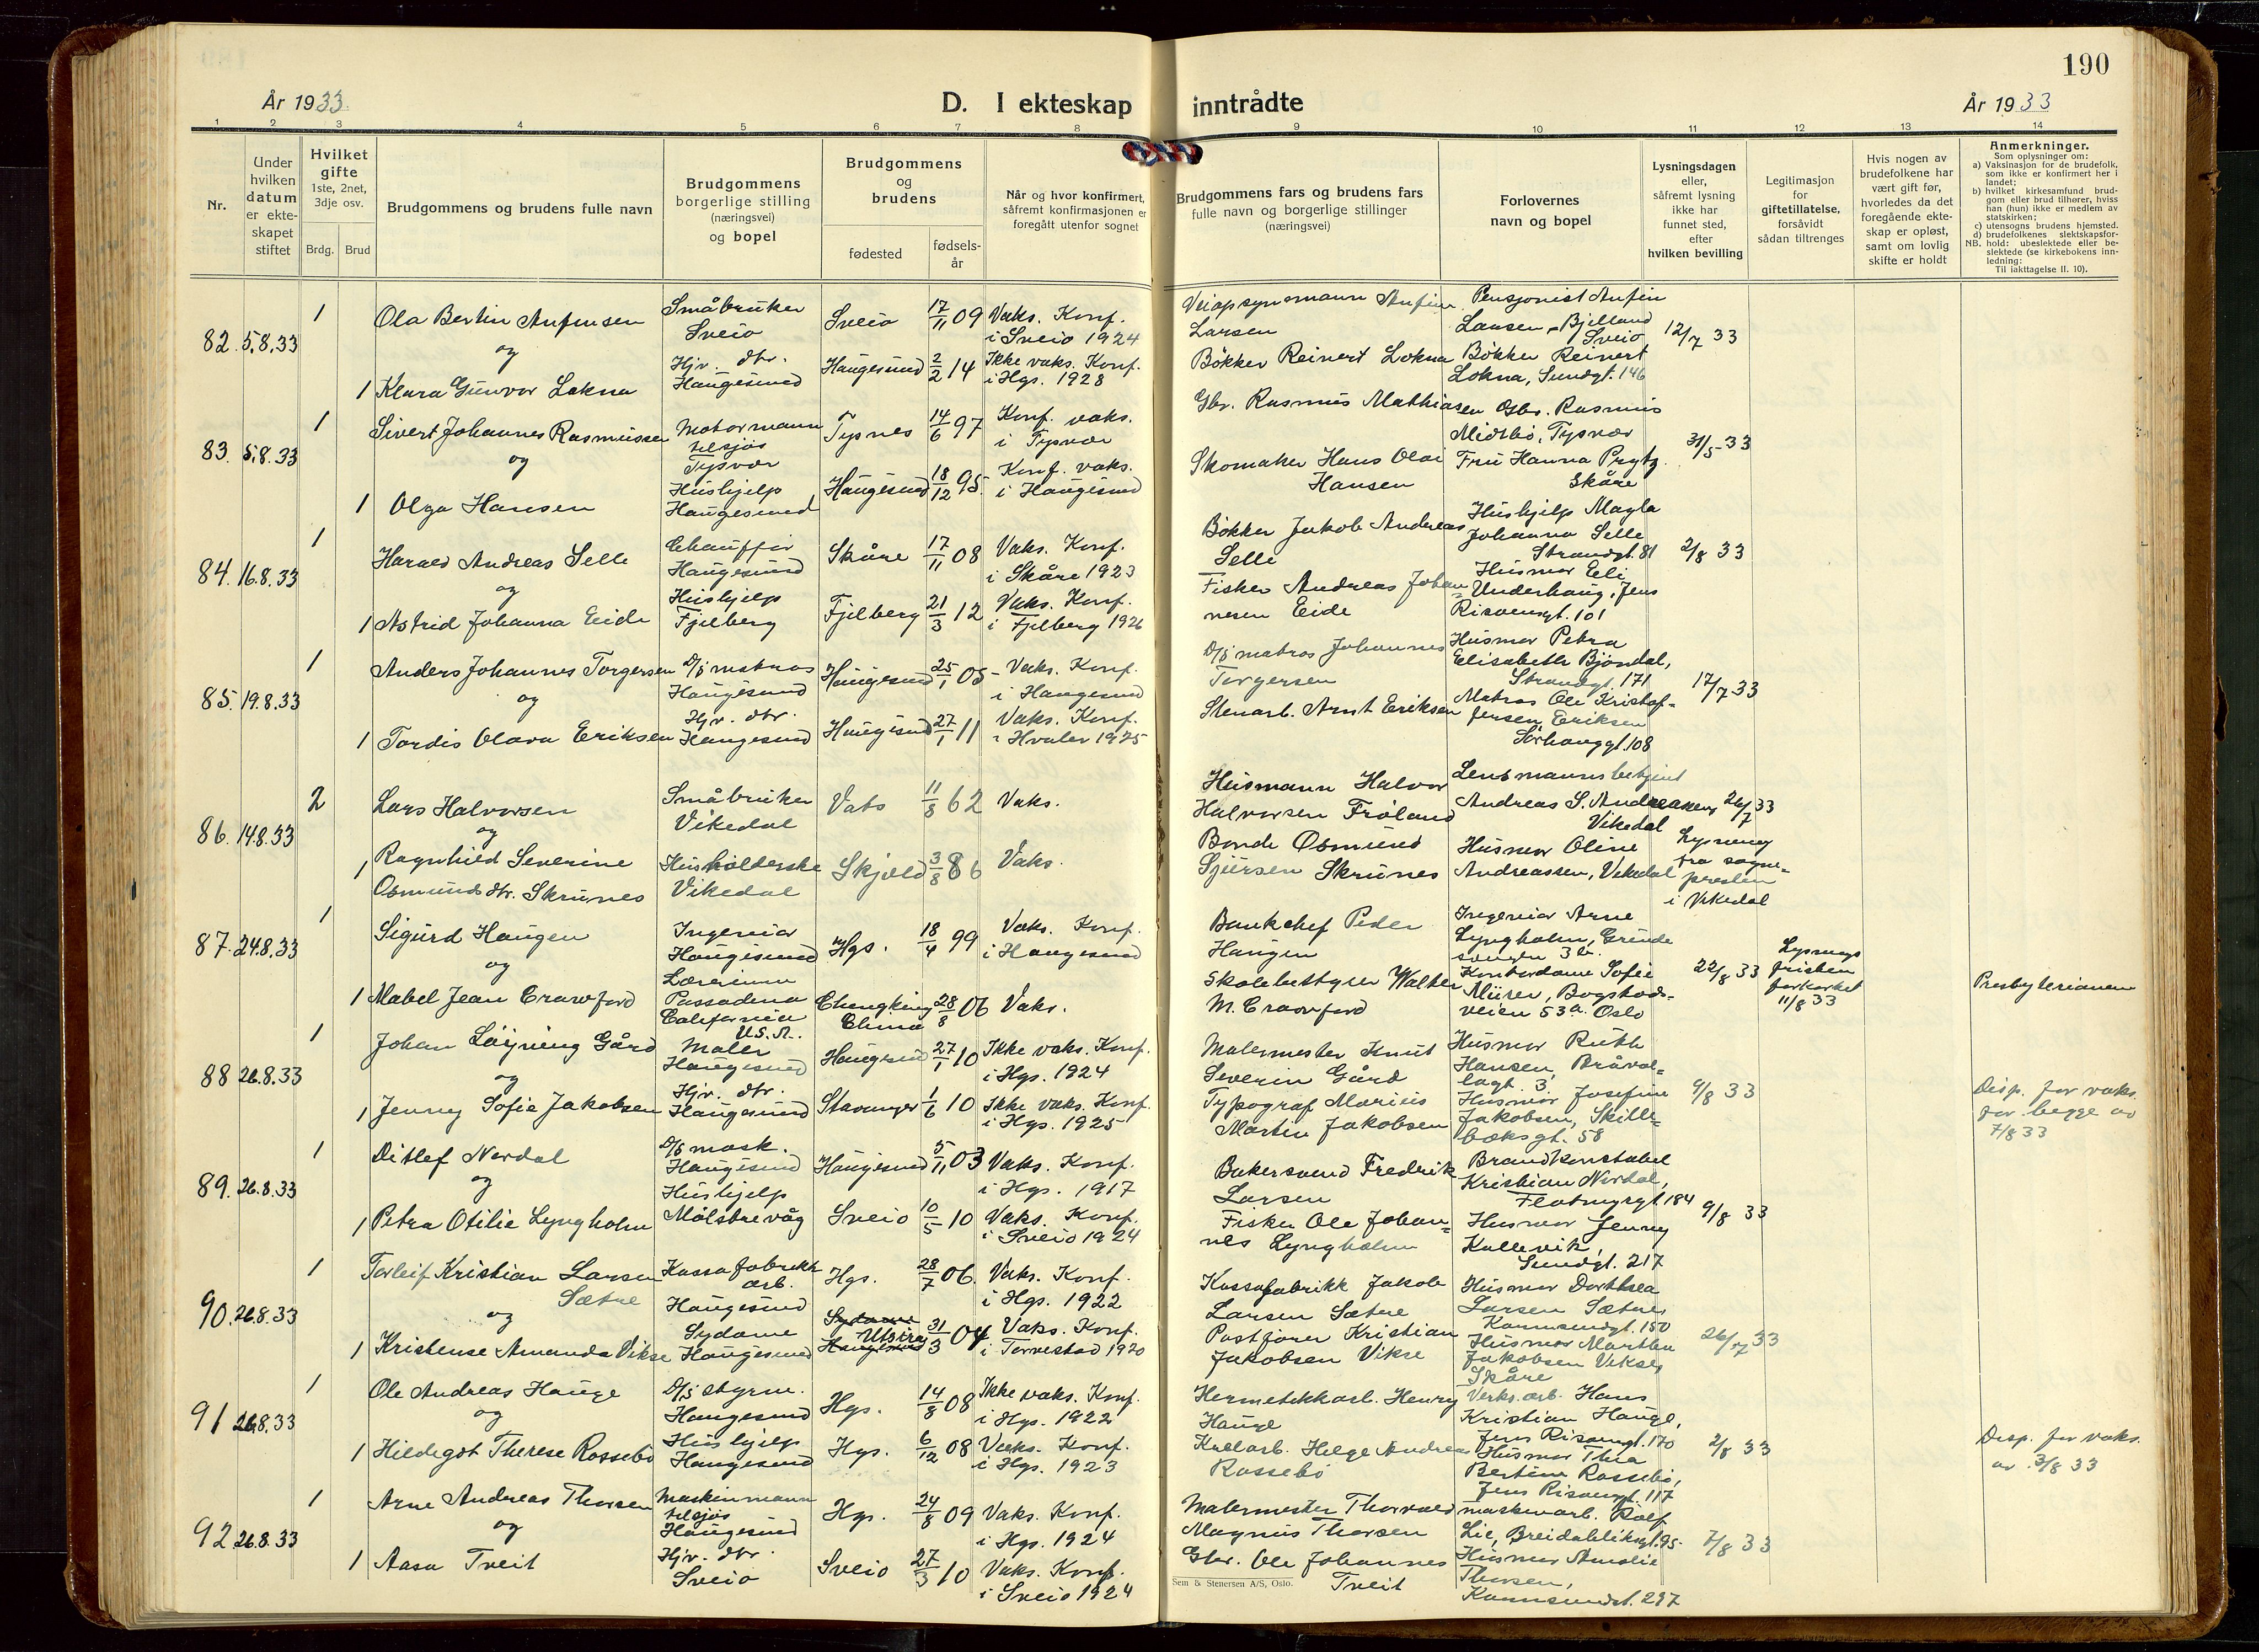 190
År 1933
D. I ekteskap inntrådte
År 1933
1 2 3 4 5 6 7 8 9 10 11 12 13 14
Nr.
Under
hvilken
datum
er ekte-
skapet
stiftet
Hvilket
gifte
1ste, 2net,
3dje osv.
Brdg. Brud
Brudgommens og brudens fulle navn
Brudgommens
borgerlige stilling
(næringsvei)
og bopel
Brudgommens
og
brudens
fødested
fødsels-
år
Når og hvor konfirmert,
såfremt konfirmasjonen er
foregått utenfor sognet
Brudgommens fars og brudens fars
fulle navn og borgerlige stillinger
(næringsvei)
Forlovernes
navn og bopel
Lysningsdagen
eller,
såfremt lysning
ikke har
funnet sted,
efter
hvilken bevilling
Legitimasjon
for
giftetillatelse,
forsåvidt
sådan tiltrenges
Hvis nogen av
brudefolkene har
vært gift før,
hvorledes da det
foregående ekte-
skap er opløst,
samt om lovlig
skifte er holdt
Anmerkninger.
Som oplysninger om:
a) Vaksinasjon for de brudefolk,
som ikke er konfirmert her i
landet;
b) hvilket kirkesamfund brud-
gom eller brud tilhører, hviss
han (hun) ikke er medlem av
statskirken;
c) utensogns brudens hjemsted.
d) brudefolkenes slektskapsfor-
NB. hold: ubeslektede eller be-
slektede (se kirkebokens inn-
ledning:
Til iakttagelse II. 10).
82. 5.8.33
1 Ola Bertin Anfinsen
og
1 Klara Gunvor Lokna
Småbruker
Sveio
Hjv. dtr.
Haugesund
Sveio 17/11 09
Haugesund 2/2 14
Vaks. Konf.
i Sveio 1924
Ikke vaks. Konf.
i Hgs. 1928
Veiopsynsmann Anfinn
Larsen
Bøkker Reinert Lokna
Pensjonist Anfin
Larsen, Bjelland
Sveio
Bøkker Reinert
Lokna, Sundgt. 146
12/7 33
83. 5.8.33
1 Sivert Johannes Rasmussen
og
1 Olga Hansen
Motormann
tilsjøs
Tysvær
Hushjelp
Haugesund
Tysnes 14/6 97
Haugesund 18/12 95.
Konf. vaks.
i Tysvær
Konf. vaks.
i Haugesund
Gbr. Rasmus Mathiasen
Skomaker Hans Olai
Hansen
Gbr. Rasmus
Midtbö, Tysvær
Fru Hanna Prytz
Skåre
31/5 33
84. 16.8.33
1 Harald Andreas Selle
og
1 Astrid Johanna Eide
Chauffør
Haugesund
Hushjelp
Fjelberg
Skåre 17/11 08
Fjelberg 21/3 12
Vaks. Konf.
i Skåre 1923
Vaks. Konf.
i Fjelberg 1926
Bøkker Jakob Andreas
Selle
Fisker Andreas Johan-
nesen Eide
Hushjelp Magla
Johanna Selle
Strandgt. 81
Husmor Eli
Underhaug, Jens
Risøensgt. 101
2/8 33
85. 19.8.33
1 Anders Johannes Torgersen
og
1 Tordis Olava Eriksen
D/s matros
Haugesund
Hjv. dtr.
Haugesund
Haugesund 25/1 05
Haugesund 27/1 11
Vaks. Konf.
i Haugesund
Vaks. Konf.
i Hvaler 1925
D/s matros Johannes
Torgersen
Stenarb. Arnt Eriksen
Husmor Petra
Elisabeth Bjöndal,
Strandgt. 171
Matros Ole Kristof-
fersen Eriksen
Sørhauggt. 108
17/7 33
86. 14.8.33
2 Lars Halvorsen
og
1 Ragnhild Severine
Osmundsdtr. Skrunes
Småbruker
Vikedal
Husholderske
Vikedal
Vats 11/8 62
Skjold 3/8 86
Vaks.
Vaks.
Husmann Halvor
Halvorsen Fröland
Bonde Osmund
Sjursen Skrunes
Lensmannsbetjent
Andreas S. Andreassen,
Vikedal
Husmor Oline
Andreassen, Vikedal
26/7 33
Lysning
fra sogne-
presten
i Vikedal
87. 24.8.33
1 Sigurd Haugen
og
1 Mabel Jean Crawford
Ingeniør
Haugesund
Lærerinne
Passadena
California
U.S.A.
Hgs. 18/4 99
Chungking
China 28/8 06
Vaks. Konf.
i Haugesund
Vaks.
Bankchef Peder
Haugen
Skolebestyrer Walter
M. Crawford
Ingeniør Arne
Lyngholm, Grinde
svingen 3b.
Kontordame Sofie
Mürer, Bogstads-
veien 53a. Oslo
22/8 33
Lysnings
fristen
forkortet
11/8 33
Presbyterianer
88 26.8.33
1 Johan Löyning Gård
og
1 Jenny Sofie Jakobsen
Maler
Haugesund
Hjv. dtr.
Haugesund
Haugesund 27/1 10
Stavanger 1/6 10
Ikke vaks. Konf.
i Hgs. 1924
Ikke vaks. Konf.
i Hgs. 1925
Malermester Knut
Severin Gård
Typograf Marius
Martin Jakobsen
Husmor Ruth
Hansen, Bråval-
lagt. 3.
Husmor Josefine
Jakobsen, Skille-
bæksgt. 58
9/8 33
Disp. for vaks.
for begge av
7/8 33
89. 26.8.33
1 Ditlef Nordal
og
1 Petra Otilie Lyngholm
D/s mask.
Haugesund
Hushjelp
Målstrevåg
Haugesund 5/11 03
Sveio 10/5 10
Vaks. Konf.
i Hgs. 1917
Vaks. Konf.
i Sveio 1924
Bakersvend Fredrik
Larsen
Fisker Ole Johan-
nes Lyngholm
Brandkonstabel
Kristian Nordal,
Flotmyrgt. 184
Husmor Jenny
Kallevik,
Sundgt. 217
9/8 33
90. 26.8.33
1 Torleif Kristian Larsen
Sætre
og
1 Kristense Amanda Vikse
Kassefabrikk
arb.
Haugesund
Sydame
Haugesund
Hgs. 28/7 06
Sydame
Utsira
Haugesund 31/3 04
Vaks. Konf.
i Hgs. 1922
Vaks. Konf.
i Torvestad 1920
Kassefabrikk Jakob
Larsen Sætre
Postfører Kristian
Jakobsen Vikse
Husmor Dorthea
Larsen Sætre,
Karmsundgt. 150
Husmor Martha
Jakobsen Vikse,
Skåre
26/7 33
91 26.8.33
1 Ole Andreas Hauge
og
1 Hildegot Therese Rossebö
D/s styrm.
Haugesund
Hushjelp
Haugesund
Hgs. 14/8 08
Hgs. 6/12 08
Ikke vaks. Konf.
i Hgs. 1922
Vaks. Konf.
i Hgs. 1923
Hermetikkarb. Henry
Hauge
Helge Andreas
Rossebö
Verks.arb. Hans
Kristian Hauge,
Jens Risøengt. 170
Husmor Thea
Bertine Rossebö,
Jens Risøengt. 117
2/8 33
Disp. for vaks.
av 3/8 33
92 26.8.33
1 Arne Andreas Thorsen
og
1 Aasa Tveit
Maskinmann
tilsjøs
Haugesund
Hjv. dtr.
Sveio
Hgs. 24/8 09
Sveio 27/3 10
Vaks. Konf.
i Hgs. 1924
Vaks. Konf.
i Sveio 1924
Malermester Thorvald
Magnus Thorsen
Gbr. Ole Johannes
Tveit
maskinarb. Rolf
Lie, Breidablikgt. 95
Husmor Amalie
Thorsen,
Karmsundgt. 297
7/8 33
Sem & Stenersen A/S, Oslo.